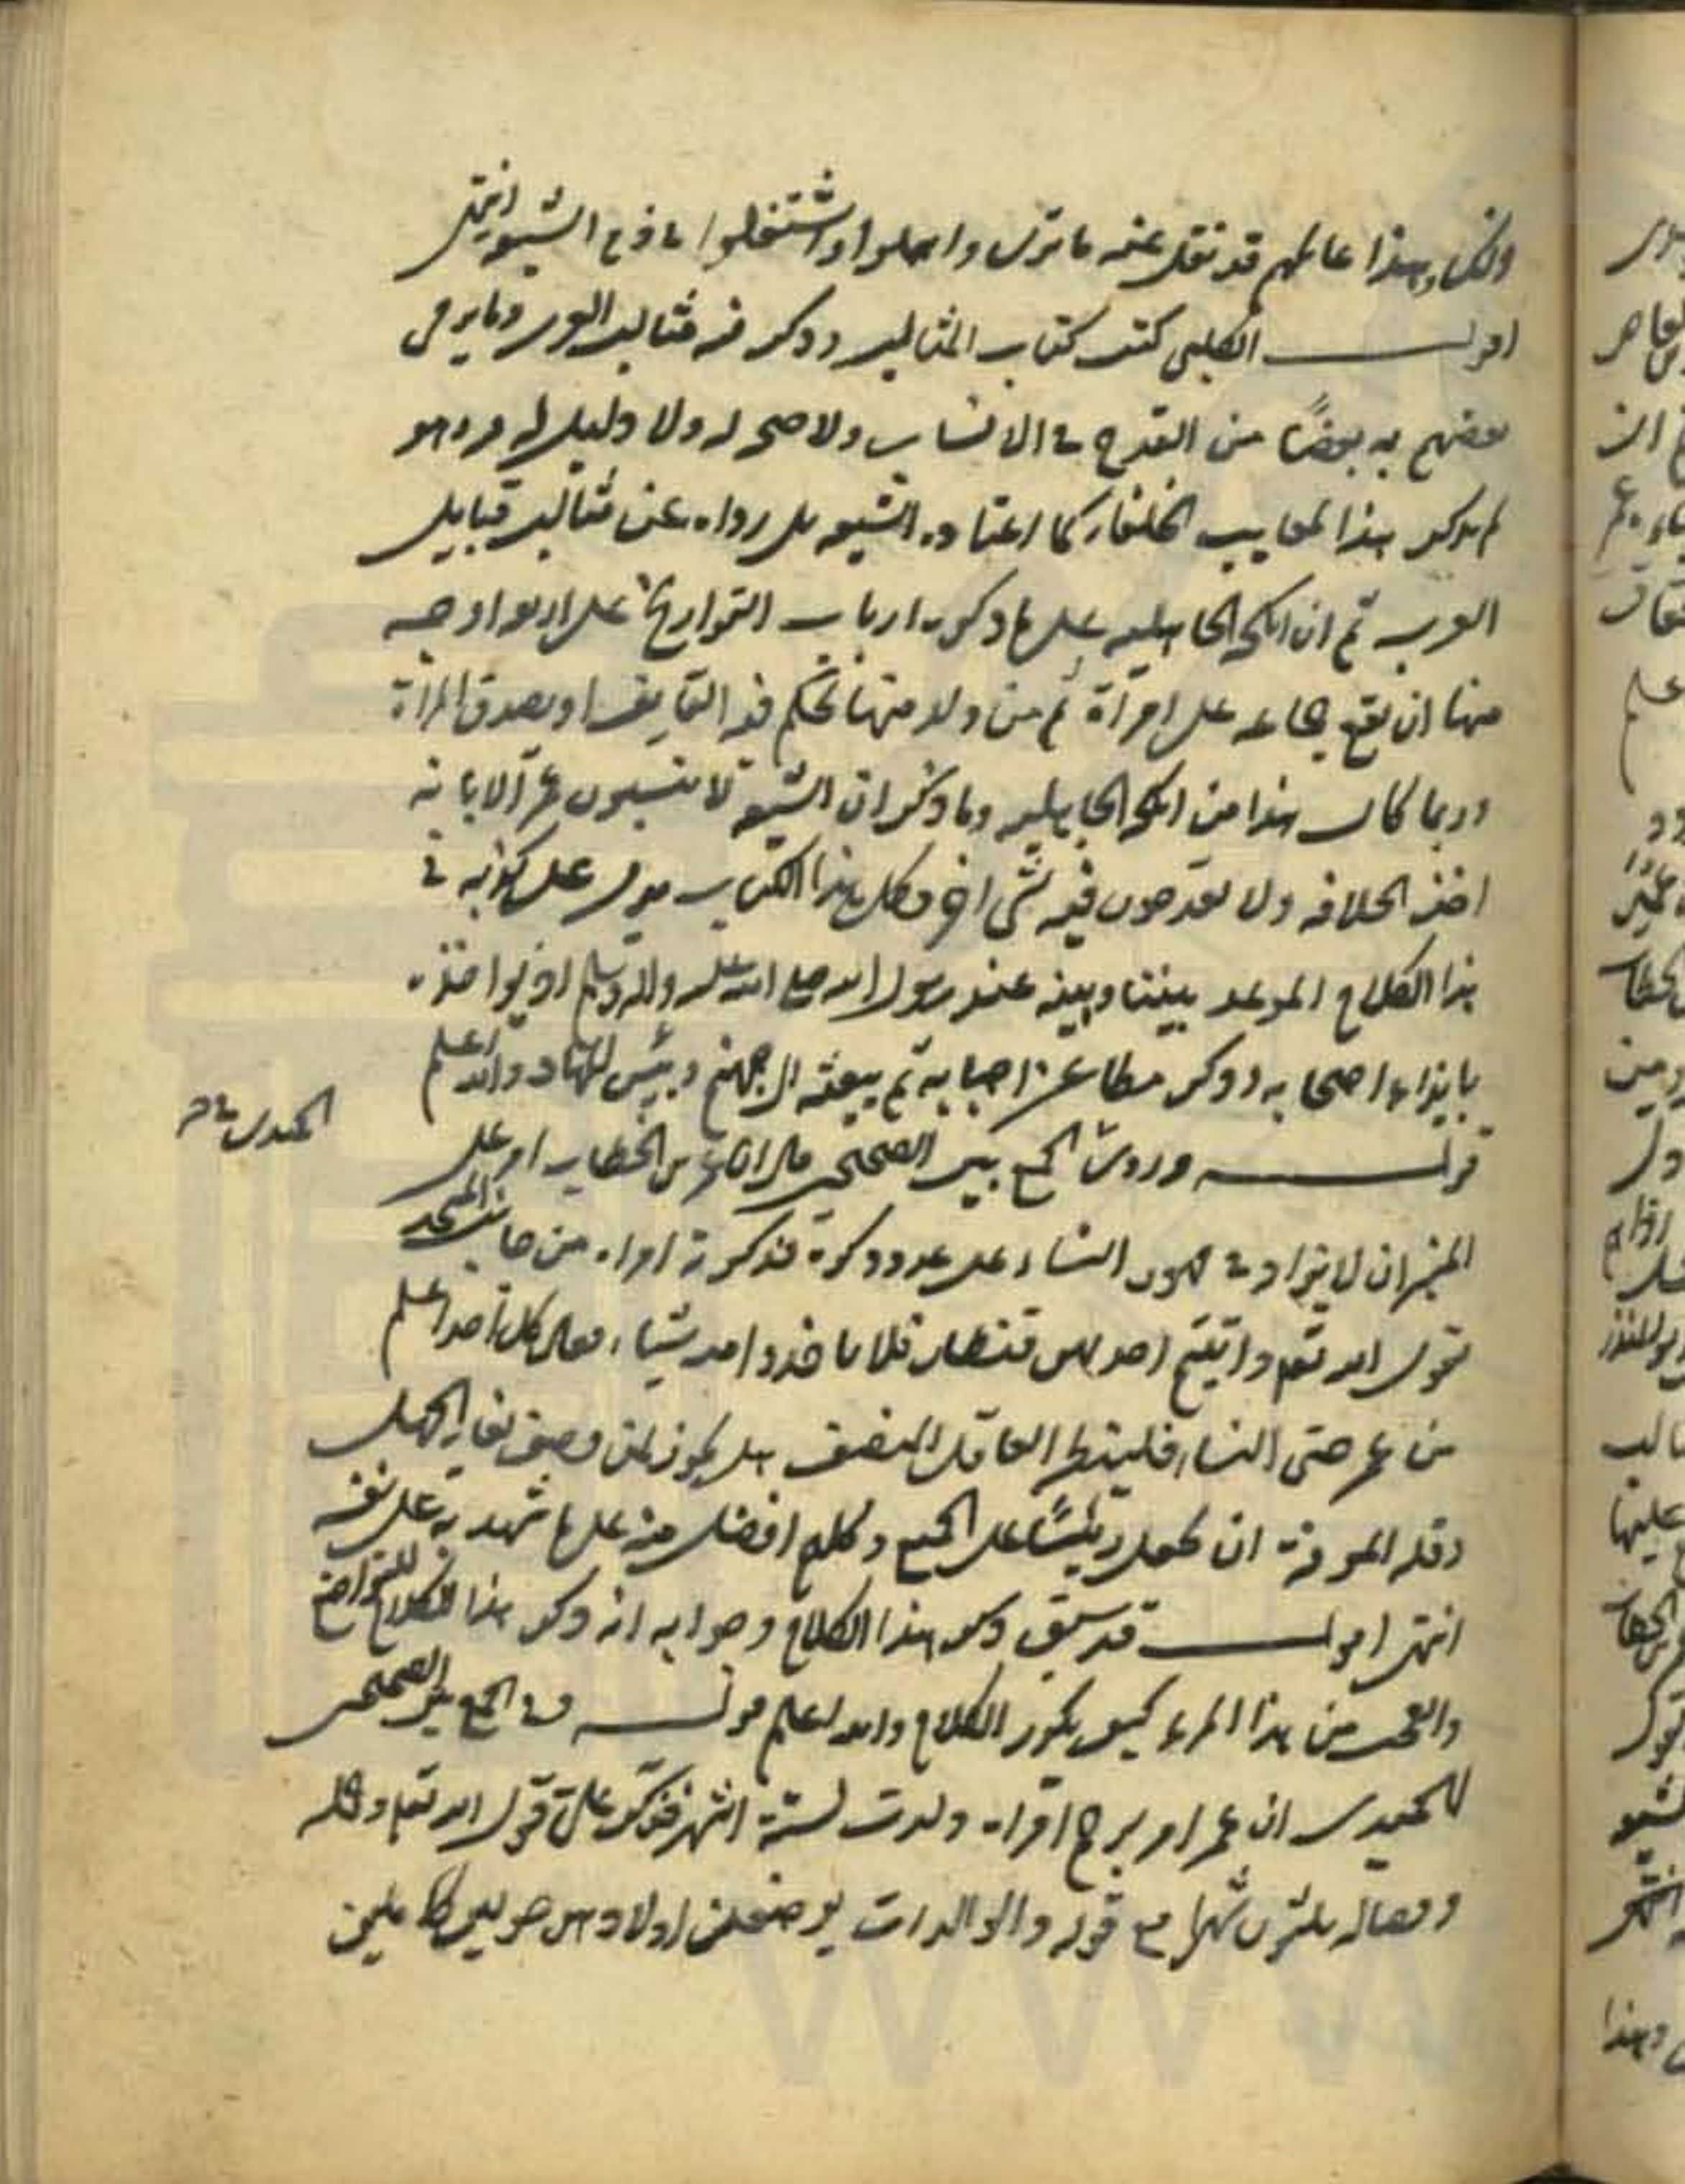 ذلك وهذا عالمهم قد نقل عنه ما ترى واهملوا واشتغلوا ما فرع الشيعه انتهى
اقول الكلبي كتب كتاب المثالب وذكر فيه مثالب العرب وما يرمى
بعضهم به بعضًا من القدح في الانساب ولا صحه له ولا دليل له وهو
لم يذكر هذا لمعايب الخلفاء كما اعتاده الشيعه بل رواه عن مثالب قبايل
العرب ثم ان انكحه الجاهليه على ما ذكره ارباب التواريخ على اربعه اوجه
منها ان يقع جماعه على امرأة ثم من ولد منها تحكم فيه القايف او يصدق المرأة
وربما كان هذا من انكحه الجاهليه وما ذكر ان الشيعة لا ينسبون عمر الا بانه
اخذ الخلافه ولا يقدحون فيه بشئ اخر فكل هذا الكتاب على كذبه في
هذا الكلام الموعد بيننا وبينه عند رسول الله صلى الله عليه واله وسلم
بايذاء اصحابه وذكر مطاعن احبابه ثم يبعثه الى جهنم وبئس المهاد والله اعلم
الحميدى
قوله وروى في الجمع بين الصحيحين قال ان عمر بن الخطاب امر على
المنبر ان لا يزاد في مهور النساء على عدد ذكره فذكرته امراه من جانب المسجد
بقول الله تعم واتيتم احديهن قنطارا فلا تاخذوا منه شيئا فقال كل احد اعلم
من عمر حتى النساء فلينظر العاقل المنصف هل يجوز لمن وصف نفسه بالجهل
وقله المعرفة ان يجعل رئيسًا على الجميع وكلهم افضل منه على ما شهد به على نفسه
انتهى اقول قد سبق ذكر هذا الكلام وجوابه انه ذكر هذا الكلام للتواضع
والعجب من هذا المرء كيف يكرر الكلام والله اعلم قوله وفى الجمع بين الصحيحين
للحميدى ان عمر امر برجم امراه ولدت لستة اشهر فذكره علي قول الله تعم وحمله
وفصاله ثلثون شهرا مع قوله والوالدات يرضعن اولادهن حولين كاملين